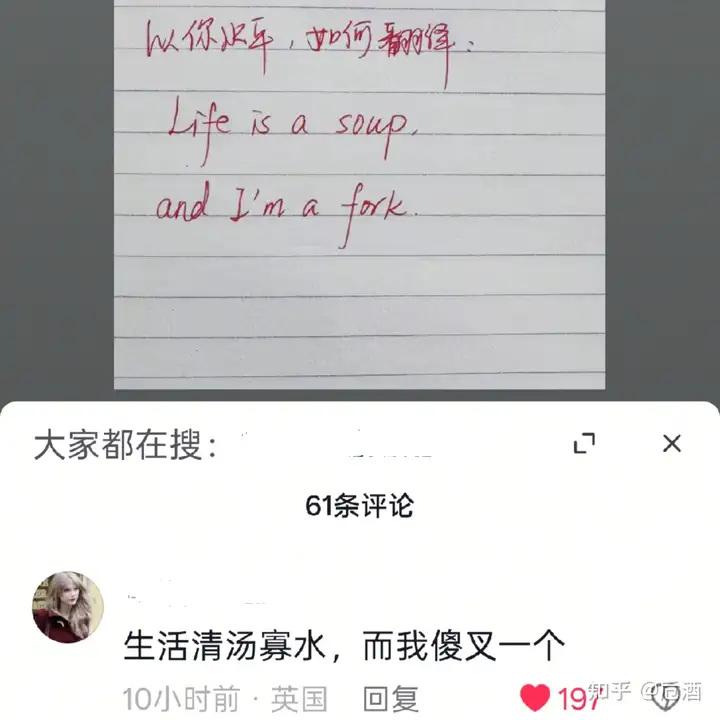 以你水平，如何翻译：
Life is a soup,
and I'm a fork.
大家都在搜：
61条评论
生活清汤寡水，而我傻叉一个
10小时前 · 英国 回复
197
知乎 @后酒